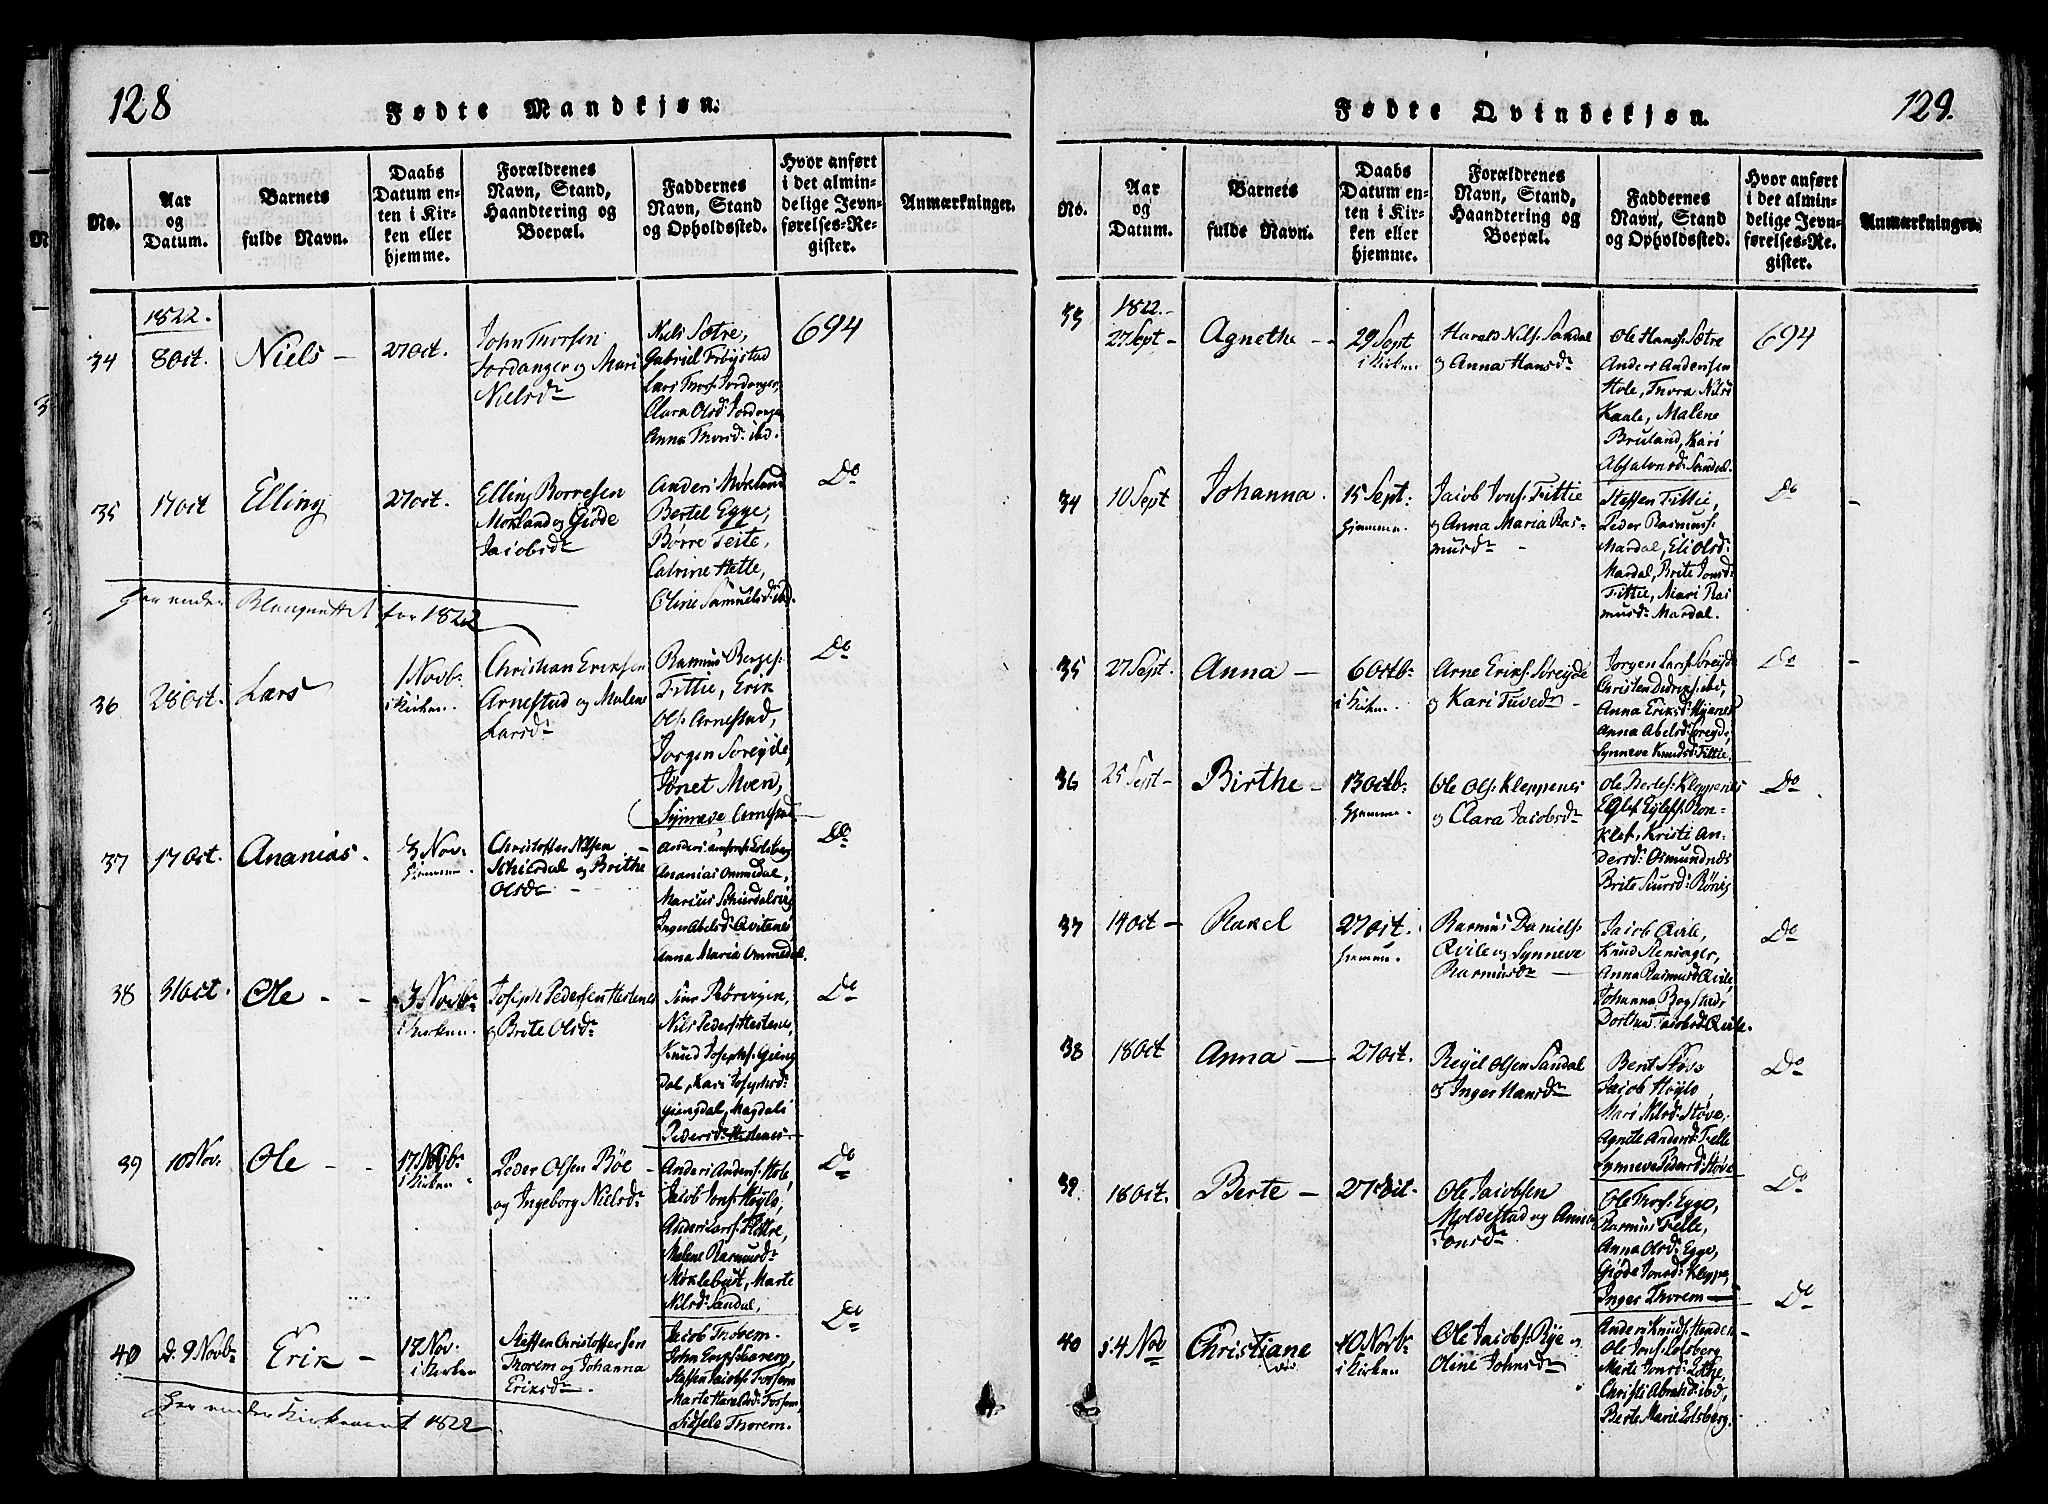 128
Fødte Mandkjøn.
No.
Aar
og
Datum.
Barnets
fulde Navn.
Daabs
Datum en-
ten i Kir-
ken eller
hjemme.
Forældrenes
Navn, Stand,
Haandtering og
Boepæl.
Faddernes
Navn, Stand
og Opholdssted.
Hvor anført
i det almin-
delige Jevn-
førelses-Re-
gister.
Anmærkninger.
1822.
34
8 Oct.
Niels —
27 Oct.
John Thorsen
Jordanger og Mari
Nielsdr
Niels Sætre,
Gabriel Frøystad
Lars Thors: Jordanger,
Clara Olsd: Jordanger
Anna Thorsd: ibd.
694
35
17 Oct
Elling
27 Oct.
Elling Borresen
Mørland og Giøde
Jacobsdr
Anders Mørland
Bertel Egge,
Børre Feite,
Catrine Hette,
Oline Samuelsd: ibd.
Do
Her ender Blanquettet for 1822
36
28 Oct.
Lars
1 Novbr
i Kirken.
Christian Eriksen
Arnestad og Malene
Larsdr
Rasmus Berges:
Fittie, Erik
Ols: Arnestad,
Jorgen Soreyde,
Jønet Moen,
Synneve Arnestad
Do
37
17 Oct.
Ananias.
3 Nov.
Hjemme
Christoffer Nilsen
Schierdal og Brithe
Olsdr —
Ananias Ommedal,
Marcus Schierdalsvig
Inger Abelsd: Qvitenes
Anna Maria Ommedal.
Do
38
31 Oct.
Ole — —
3 Novbr
i Kirken.
Joseph Pedersen Hestenes
og Brite Olsdr
Siur Rørvigen,
Nils Peders: Hestenes,
Knud Josephs: Gieng
dal, Kari Josephsd:
Giengdal, Magdali
Pedersd: Hestenes.
Do
39
10 Nov:
Ole — —
17 Novbr
i Kirken
Peder Olsen Böe —
og Ingeborg Nielsdr
Anders Anders: Hole,
Jacob Jons: Høylo,
Anders Lars: Hettre,
Malene Rasmusdr
Møklebust, Marte
Nilsd: Sandal,
Do
40
d. 9 Novbr
Erik —
17 Nov.
i Kirken
Steffen Christoffersen
Thorem og Johanna
Eriksdr.
Jacob Thorem
Steffen Jacobs: Fossem
Marte Haraldsd: Fossem,
Sidsele Thorem.
Do
Her ender Kirkeaaret 1822
129.
Fødte Qvindekjøn.
No.
Aar
og
Datum.
Barnets
fulde Navn.
Daabs
Datum en-
ten i Kir-
ken eller
hjemme.
Forældrenes
Navn, Stand,
Haandtering og
Boepæl.
Faddernes
Navn, Stand
og Opholdssted.
Hvor anført
i det almin-
delige Jevn-
førelses-Re-
gister.
Anmærkninger.
1822.
33
27 Sept —
Agnethe —
29 Sept
i Kirken
Harald Nils: Sandal
og Anna Hansdr
Ole Hans: Sætre
Anders Andersen
Hole, Thora Nilsd
Kaale, Malene
Bruland, Kari
Absalonsd: Sandal.
694
34
10 Sept
Johanna.
15 Sept:
Hjemme.
Jacob Jons: Fittie
og Anna Maria Ras-
musdr —
Steffen Fittie,
Peder Rasmuss:
Mardal, Eli Olsd:
Mardal, Brite Jonsd:
Fittie, Mari Ras
musd: Mardal.
Do
35
27 Sept.
Anna —
6 Octbr
i Kirken.
Arne Eriks: Soreyde
og Kari Tuvedr —
Jorgen Lars: Soreyde
Christen Didriks: ibd,
Anna Eriksd: Hjanes
Anna Abelsd: Soreyde,
Synneve Knudsd: Fittie.
Do
36
25 Sept —
Birthe —
13 Octbr
Hjemme.
Ole Ols: Kleppenes
og Clara Jacobsdr
Ole Berles: Kleppenes
klet, Kristi An
dersd: Osmundnes
Brite Siursd: Rønis
Do
37
14 Oct —
Rakel
27 Oct.
Hjemme.
Rasmus Daniels:
Qvile og Synneve
Rasmusdr —
Jacob Qvile,
Knud Stensager,
Anna Rasmusd: Qvile
Johanna Bogstad,
Dorthea Jacobsd: Qvile.
Do
38
18 Oct
Anna —
27 Oct.
Reyel Olsen Sandal
og Inger Hansdr
Bent Støve
Jacob Høylo,
Mari Nilsd: Støve,
Agnite Andersd: Felle
Synneve Pedersd: Støve
Do
39
18 Oct.
Berte —
27 Oct.
Ole Jacobsen
Moldestad og Anna
Jonsdr
Ole Thors: Egge,
Rasmus Felle,
Anna Olsd: Egge,
Giøde Jonsd: Kleppe,
Inger Thorem —
Do
40
d. 4 Nov
Christiane
10 Novbr
i Kirken
Ole Jacobs: Rye og
Oline Johnsdr
Anders Knuds: Henden
Ole Jons: Eolsberg
Marte Jonsd: Lothe,
Christi Abrahd: ibd,
Berte Marie Eolsberg.
Do